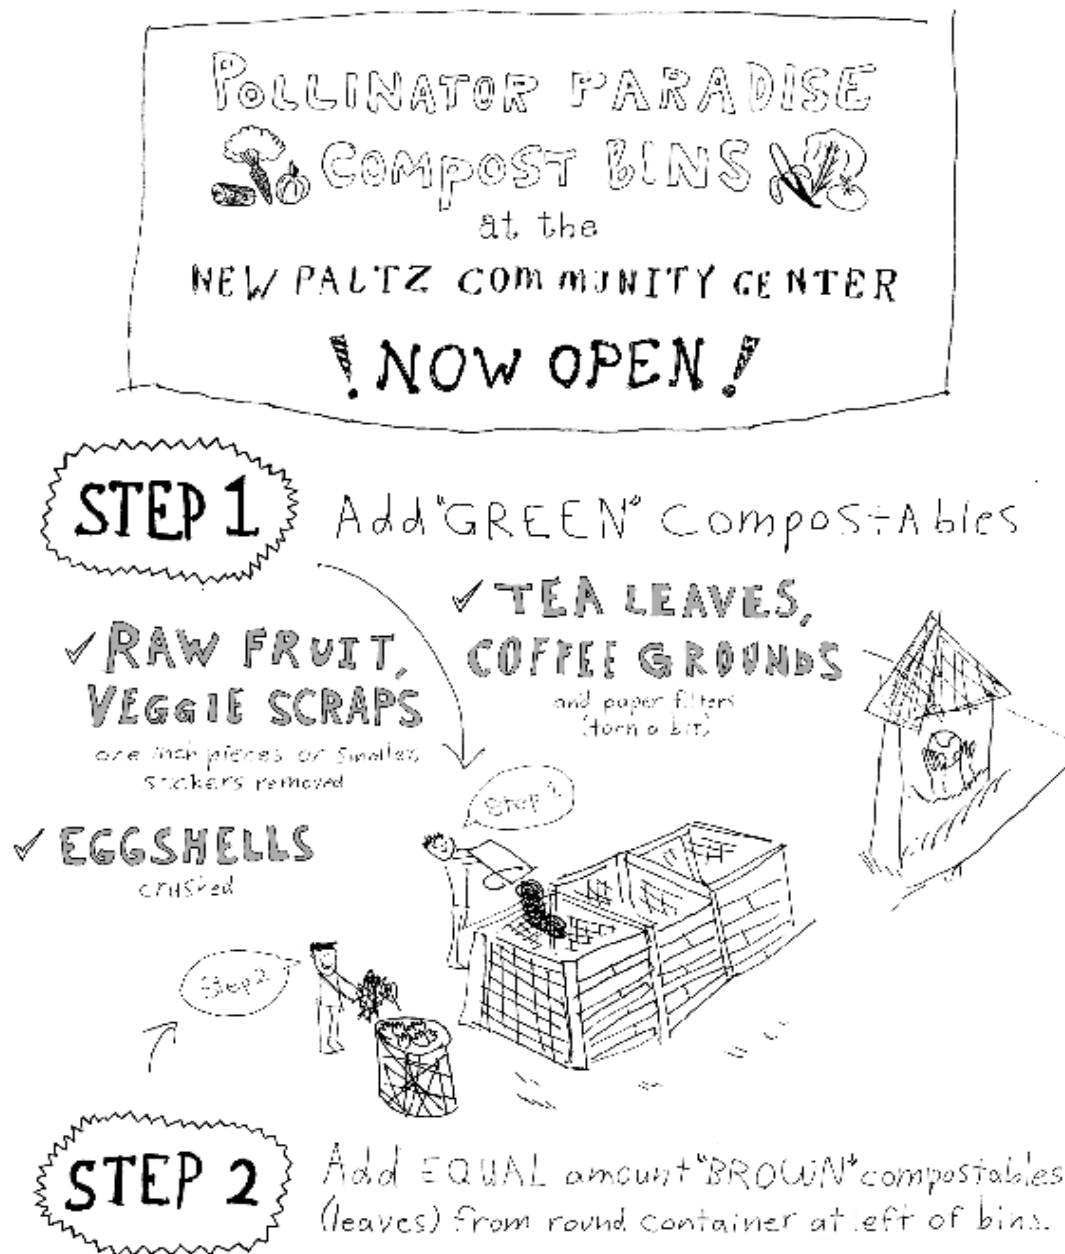 POLLINATOR PARADISE
COMPOST BINS
at the
NEW PALTZ COMMUNITY CENTER
! NOW OPEN !
STEP 1
Add "GREEN" CompostAbles
✓ TEA LEAVES,
COFFEE GROUNDS
and paper filters
(torn a bit)
✓ RAW FRUIT,
VEGGIE SCRAPS
one inch pieces or smaller,
stickers removed
✓ EGGSHELLS
crushed
Step 1
Step 2
STEP 2
Add EQUAL amount "BROWN" compostables
(leaves) from round container at left of bins.